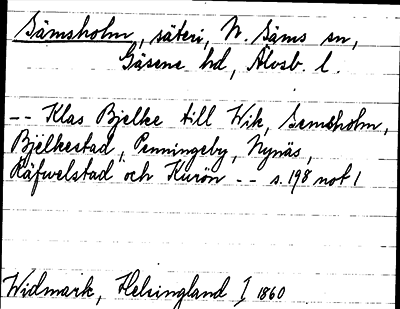 Sämsholm, säteri, N. Säms sn,
Gäsene hd, Älvsb. l.
-- Klas Bjelke till Wik, Semsholm,
Bjelkestad, Penningeby, Nynäs,
Räfwelstad och Kurön -- s. 198 not 1
Widmark, Helsingland I 1860